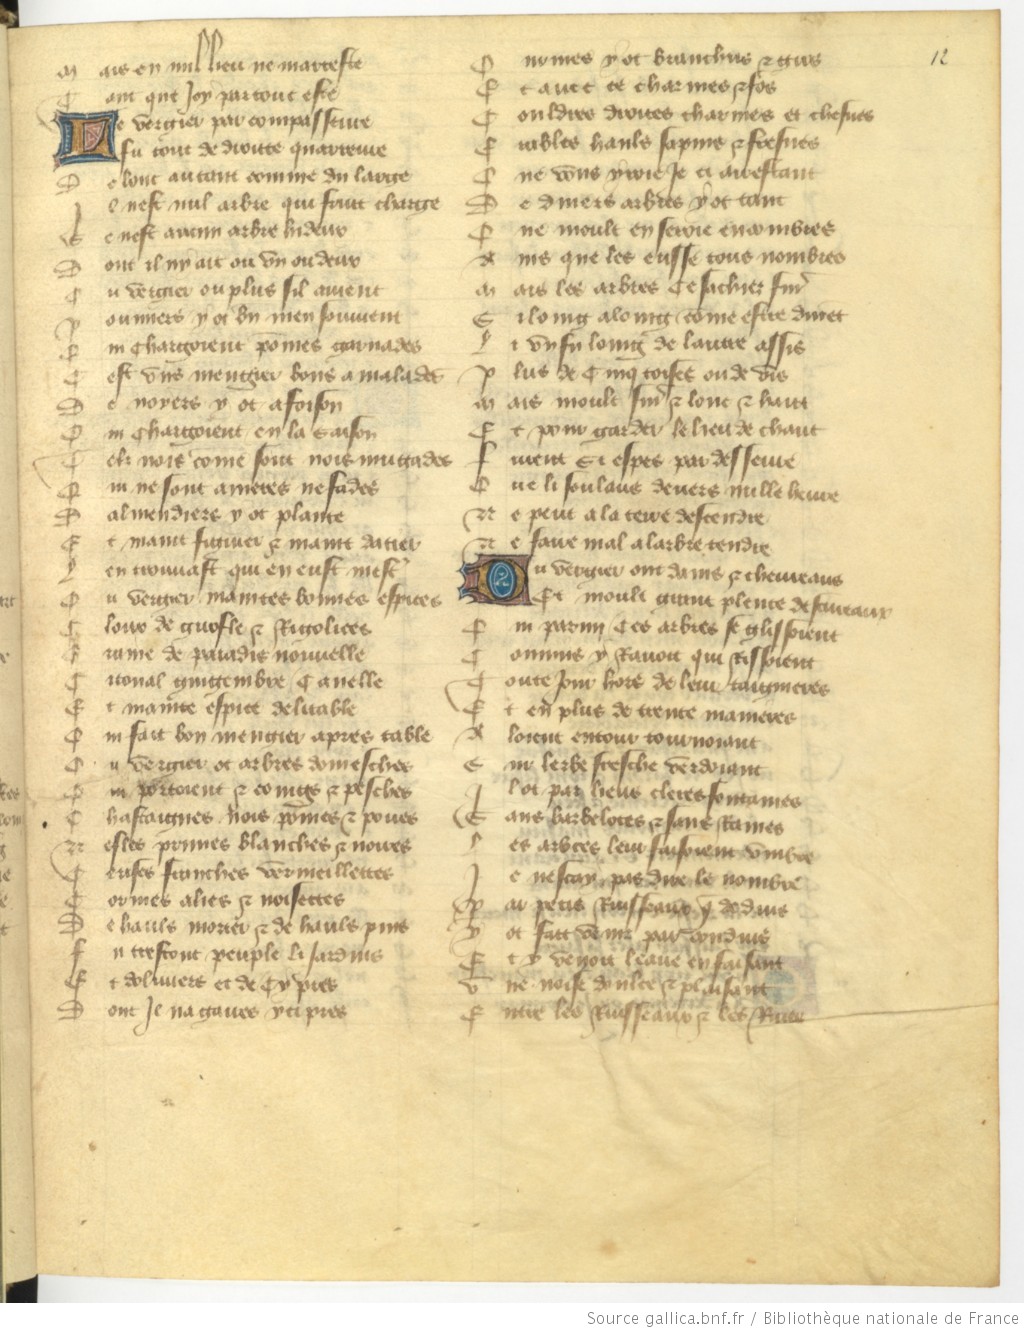 12
Mais en nul lieu ne m'arreste
Tant que j'oy par tout este
Le vergier par compasseure
fu tout de droitte quarreure
De lonc autant comme du large
Il nest nul arbre qui fruit charge
Se nest aucun arbre hideux
Dont il ny ait ou vn ou deux
Ou vergier ou plus sil auient
Pommiers y ot bn men souuient
Qui chargoient pomes garnades
Cest vns mengier bons a malades
De noyers y ot a foison
Qui chargoient en la saison
Tel nois come sont nois muguades
Qui ne sont ameres ne fades
Dalmendiers y ot plante
Et maint figuier & maint datier
Y en trouuast qui en eust mest
Ou vergier maintes bonnes espices
Cloux de girofle & Rigolices
Graine de paradis nouuelle
Citonal gingembre Canelle
Et mainte espice delitable
Qui fait bon mengier apres table
Ou vergier ot arbres domesches
Qui portoient & coings & pesches
Chastaignes nois pomes & poires
Nesles prunes blanches & noires
Cerises fresches vermeillettes
Cormes alies & noisettes
De haulx loriers & de haulx pins
fu trestout peuple li jardins
Et doliuiers et de Cypres
Dont Il na gaires yci pres
Ormes y ot branchus & gros
Et auec ce charmes & fos
Couldres droites charmes et chesnes
Erables haulx sapins & fresnes
Que vous yroie Je ci arrestant
De diuers arbres y ot tant
Que moult en seroie encombres
Ains que les eusse tous nombres
Mais les arbres Ce sachies
Si loing a loing come estre durent
Li vn fu loing de lautre assis
Plus de Cinq toises ou de vis
Mais moult & lonc & hault
Et pour garder le lieu de chaut
furent Si espes par desseure
Que li soulaus deuers nulle heure
Ne peut a la terre descendre
Ne faire mal a larbre tendre
Ou vergier ont dains & cheureaus
Et moult grant plente descureaux
Qui parmy Ces arbres se glissoient
Connins y Rauoit qui Rissoient
Toute Jour hors de leur taignieres
Et en plus de trente manieres
Aloient entour tournoiant
Sur lerbe fresche verdoiant
Il ot par lieus cleres fontaines
Sans barbelotes & sans Raines
Les arbres leur faisoient vmbre
Je nescay pas dire le nombre
Par petis Ruisseaux y doduis
Y ot fait venir par conduis
Et y venoit leaue en faisant
Vne noise doulce & plaisant
Entre les Ruisseaux & les Riues
Source gallica.bnf.fr / Bibliothèque nationale de France